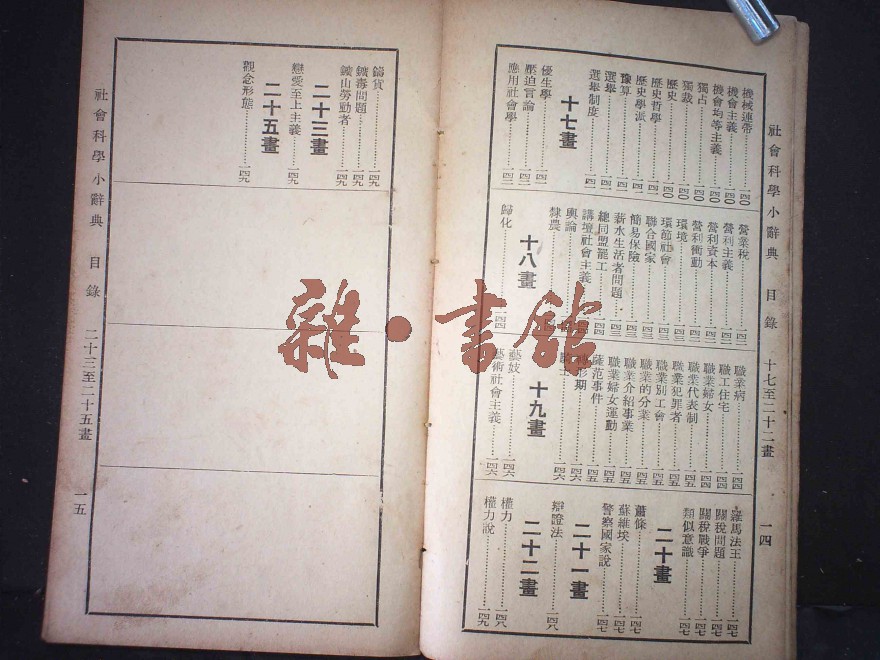 社會科學小辭典　目錄　十七至二十二畫　一四
機械連帶……一四〇
機會主義……一四〇
機會均等主義……一四〇
獨占……一四〇
獨裁……一四〇
歷史……一四〇
歷史哲學……一四〇
歷史學派……一四一
豫算……一四一
選舉……一四一
選舉制度……一四一
十七畫
優生學……一四一
壓迫言論……一四二
應用社會學……一四二
營業稅……一四二
營利主義……一四二
營利資本……一四二
營利衝動……一四三
環境……一四三
環節社會……一四三
聯合國家……一四三
簡易保險……一四三
薪水生活者問題……一四三
總同盟罷工……一四四
講壇社會主義……一四四
輿論
隸農
十八畫
歸化……一四四
職業病……一四四
職工住宅……一四四
職業婦女……一四四
職業代表制……一四五
職業犯罪者……一四五
職業別工會……一四五
職業的分業……一四五
職業介紹事業……一四五
職業婦女運動……一四五
薩范事件……一四五
轉形期……一四六
一四六
十九畫
藝妓……一四六
藝術社會主義……一四六
羅馬法王……一四七
關稅問題……一四七
關稅戰爭……一四七
類似意識……一四七
二十畫
蕭條……一四七
蘇維埃……一四七
警察國家說……一四七
二十一畫
辯證法……一四八
二十二畫
權力……一四八
權力說……一四九
鑄貨……一四九
鑛毒問題……一四九
鑛山勞動者……一四九
二十三畫
戀愛至上主義……一四九
二十五畫
觀念形態……一四九
社會科學小辭典　目錄　二十三至二十五畫　一五
雜·書館